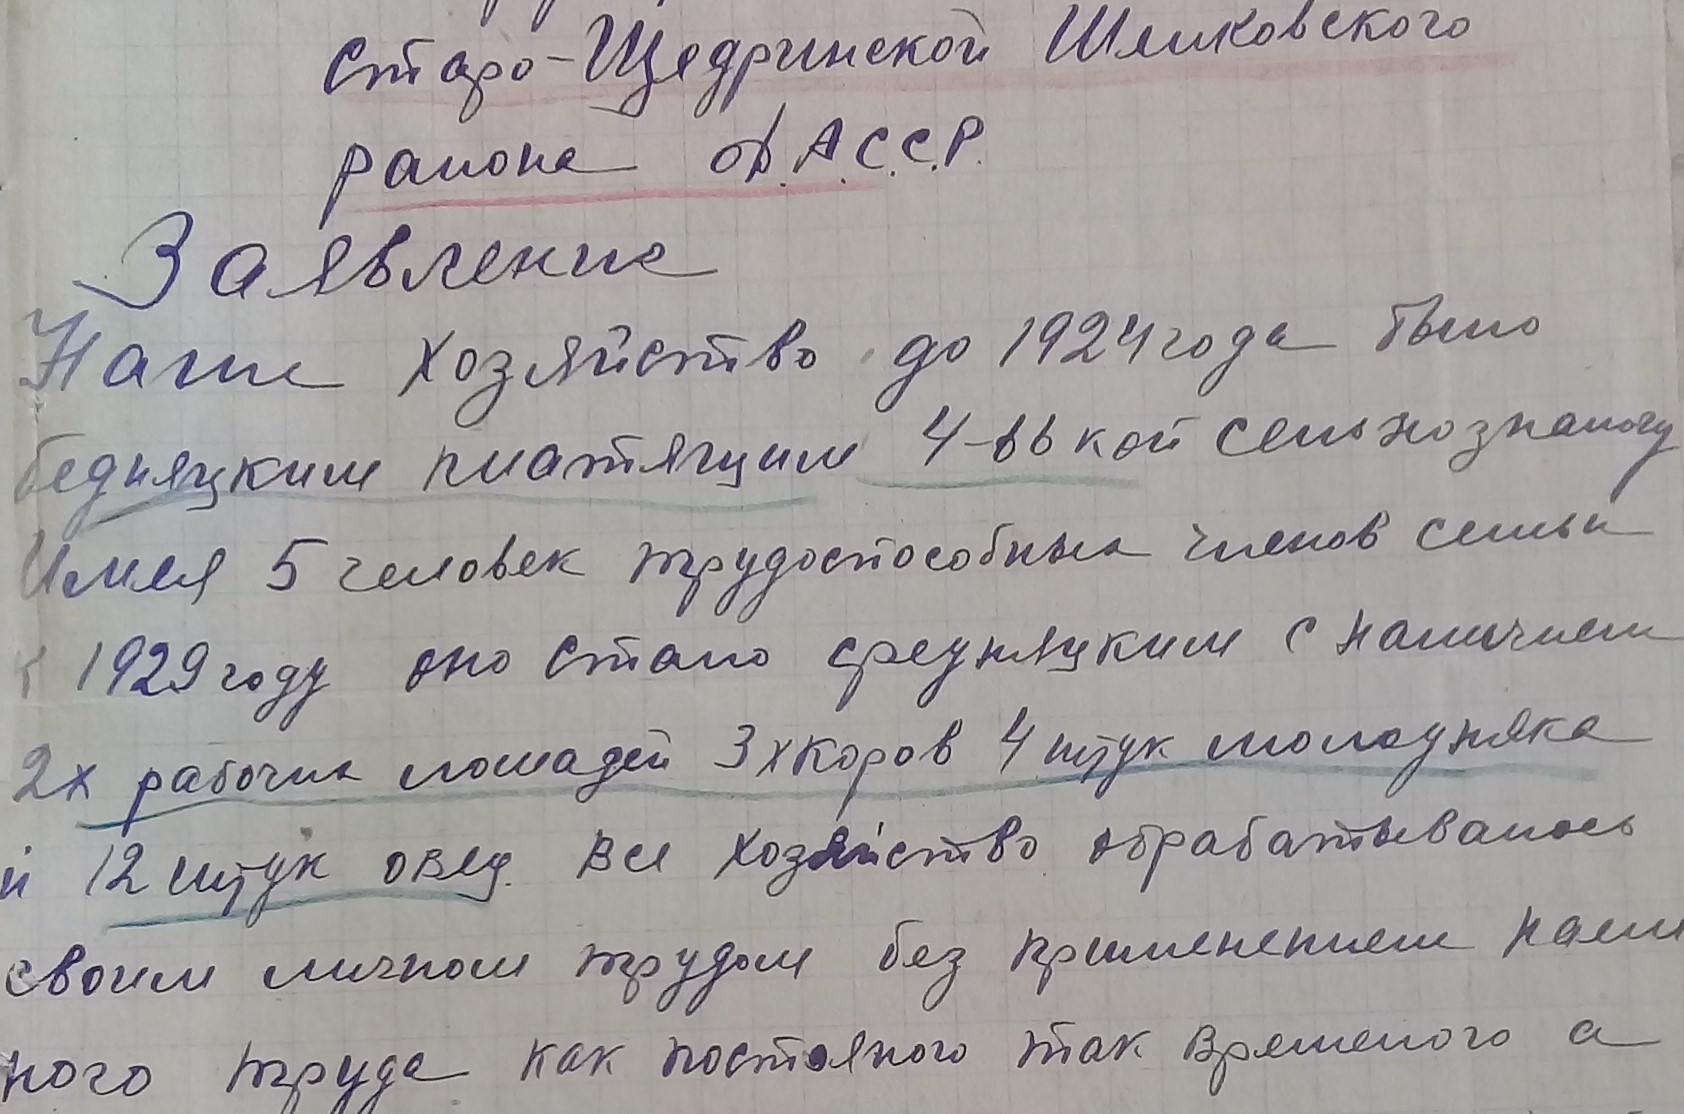 Старо-Щедринской Шелковского
района Д.А.С.С.Р.
Заявление
Наше хозяйство до 1924 года было
бедняцким 4-вькой
Имея 5 человек трудоспособных членов семьи
к 1929 году оно стало средняцким с наличием
2х рабочих лошадей 3х коров 4 штук молодняка
и 12 штук овец. Все хозяйство обрабатывалось
своим личном трудом без применением наем
ного труда как постояного так временого а